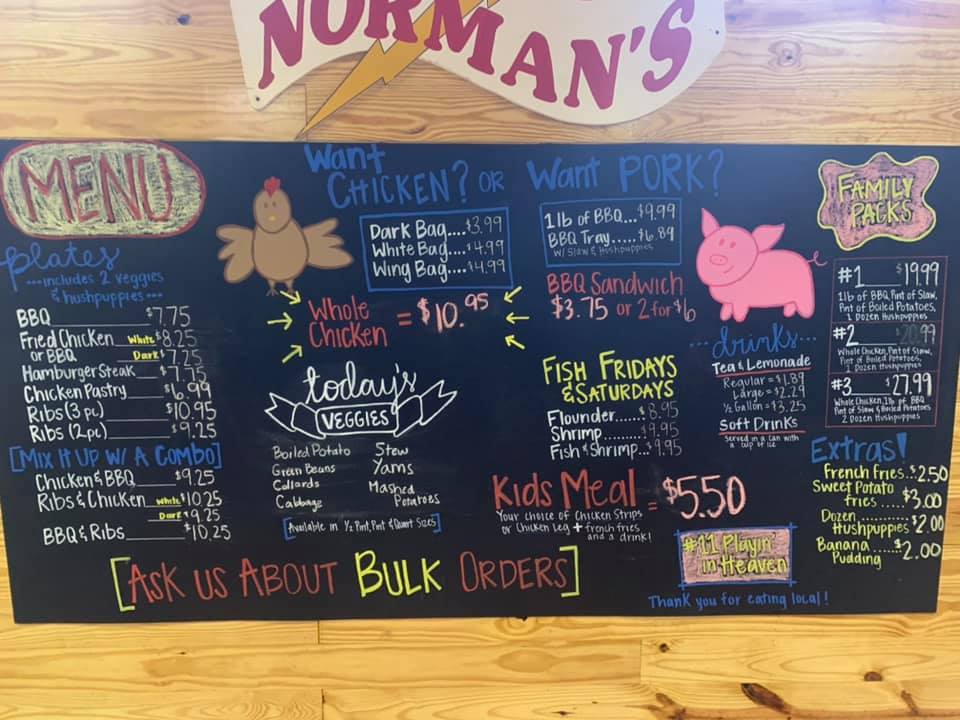 NORMAN'S
MENU
plates
---includes 2 veggies
& hushpuppies---
BBQ $7.75
Fried Chicken White $8.25
or BBQ Dark $7.25
Hamburger Steak $7.75
Chicken Pastry $6.99
Ribs (3 pc) $10.95
Ribs (2 pc) $9.25
[Mix It Up W/ A Combo]
Chicken & BBQ $9.25
Ribs & Chicken White $10.25
Dark $9.25
BBQ & Ribs $10.25
Want
CHICKEN? OR
Dark Bag....$3.99
White Bag....$4.99
Wing Bag....$4.99
Whole
Chicken = $10.95
today's
VEGGIES
Boiled Potato
Green Beans
Collards
Cabbage
Stew
Yams
Mashed
Potatoes
[Available in 1/2 Pint, Pint & Quart Sizes]
Want PORK?
1 lb of BBQ...$9.99
BBQ Tray.....$6.89
w/ Slaw & Hushpuppies
BBQ SANDWICH
$3.75 or 2 for $6
FISH FRIDAYS
& SATURDAYS
Flounder.....$8.95
Shrimp.........$9.95
Fish & Shrimp...$9.95
...drinks...
Tea & Lemonade
Regular = $1.89
Large = $2.29
1/2 Gallon = $3.25
Soft Drinks
Served in a can with
a cup of ice
Kids Meal = $5.50
Your choice of Chicken Strips
or Chicken Leg + french fries
and a drink!
#11 Playin'
in Heaven
[ASK US ABOUT BULK ORDERS]
Thank you for eating local!
FAMILY
PACKS
#1 $19.99
1lb of BBQ, Pint of Slaw,
Pint of Boiled Potatoes,
1 Dozen Hushpuppies
#2 20.99
Whole Chicken, Pint of Slaw,
Pint of Boiled Potatoes,
1 Dozen Hushpuppies
#3 $27.99
Whole Chicken, 1lb of BBQ
Pint of Slaw & Boiled Potatoes
2 Dozen Hushpuppies
Extras!
French Fries..$2.50
Sweet Potato
fries... $3.00
Dozen...........
Hushpuppies $2.00
Banana
Pudding .....$2.00